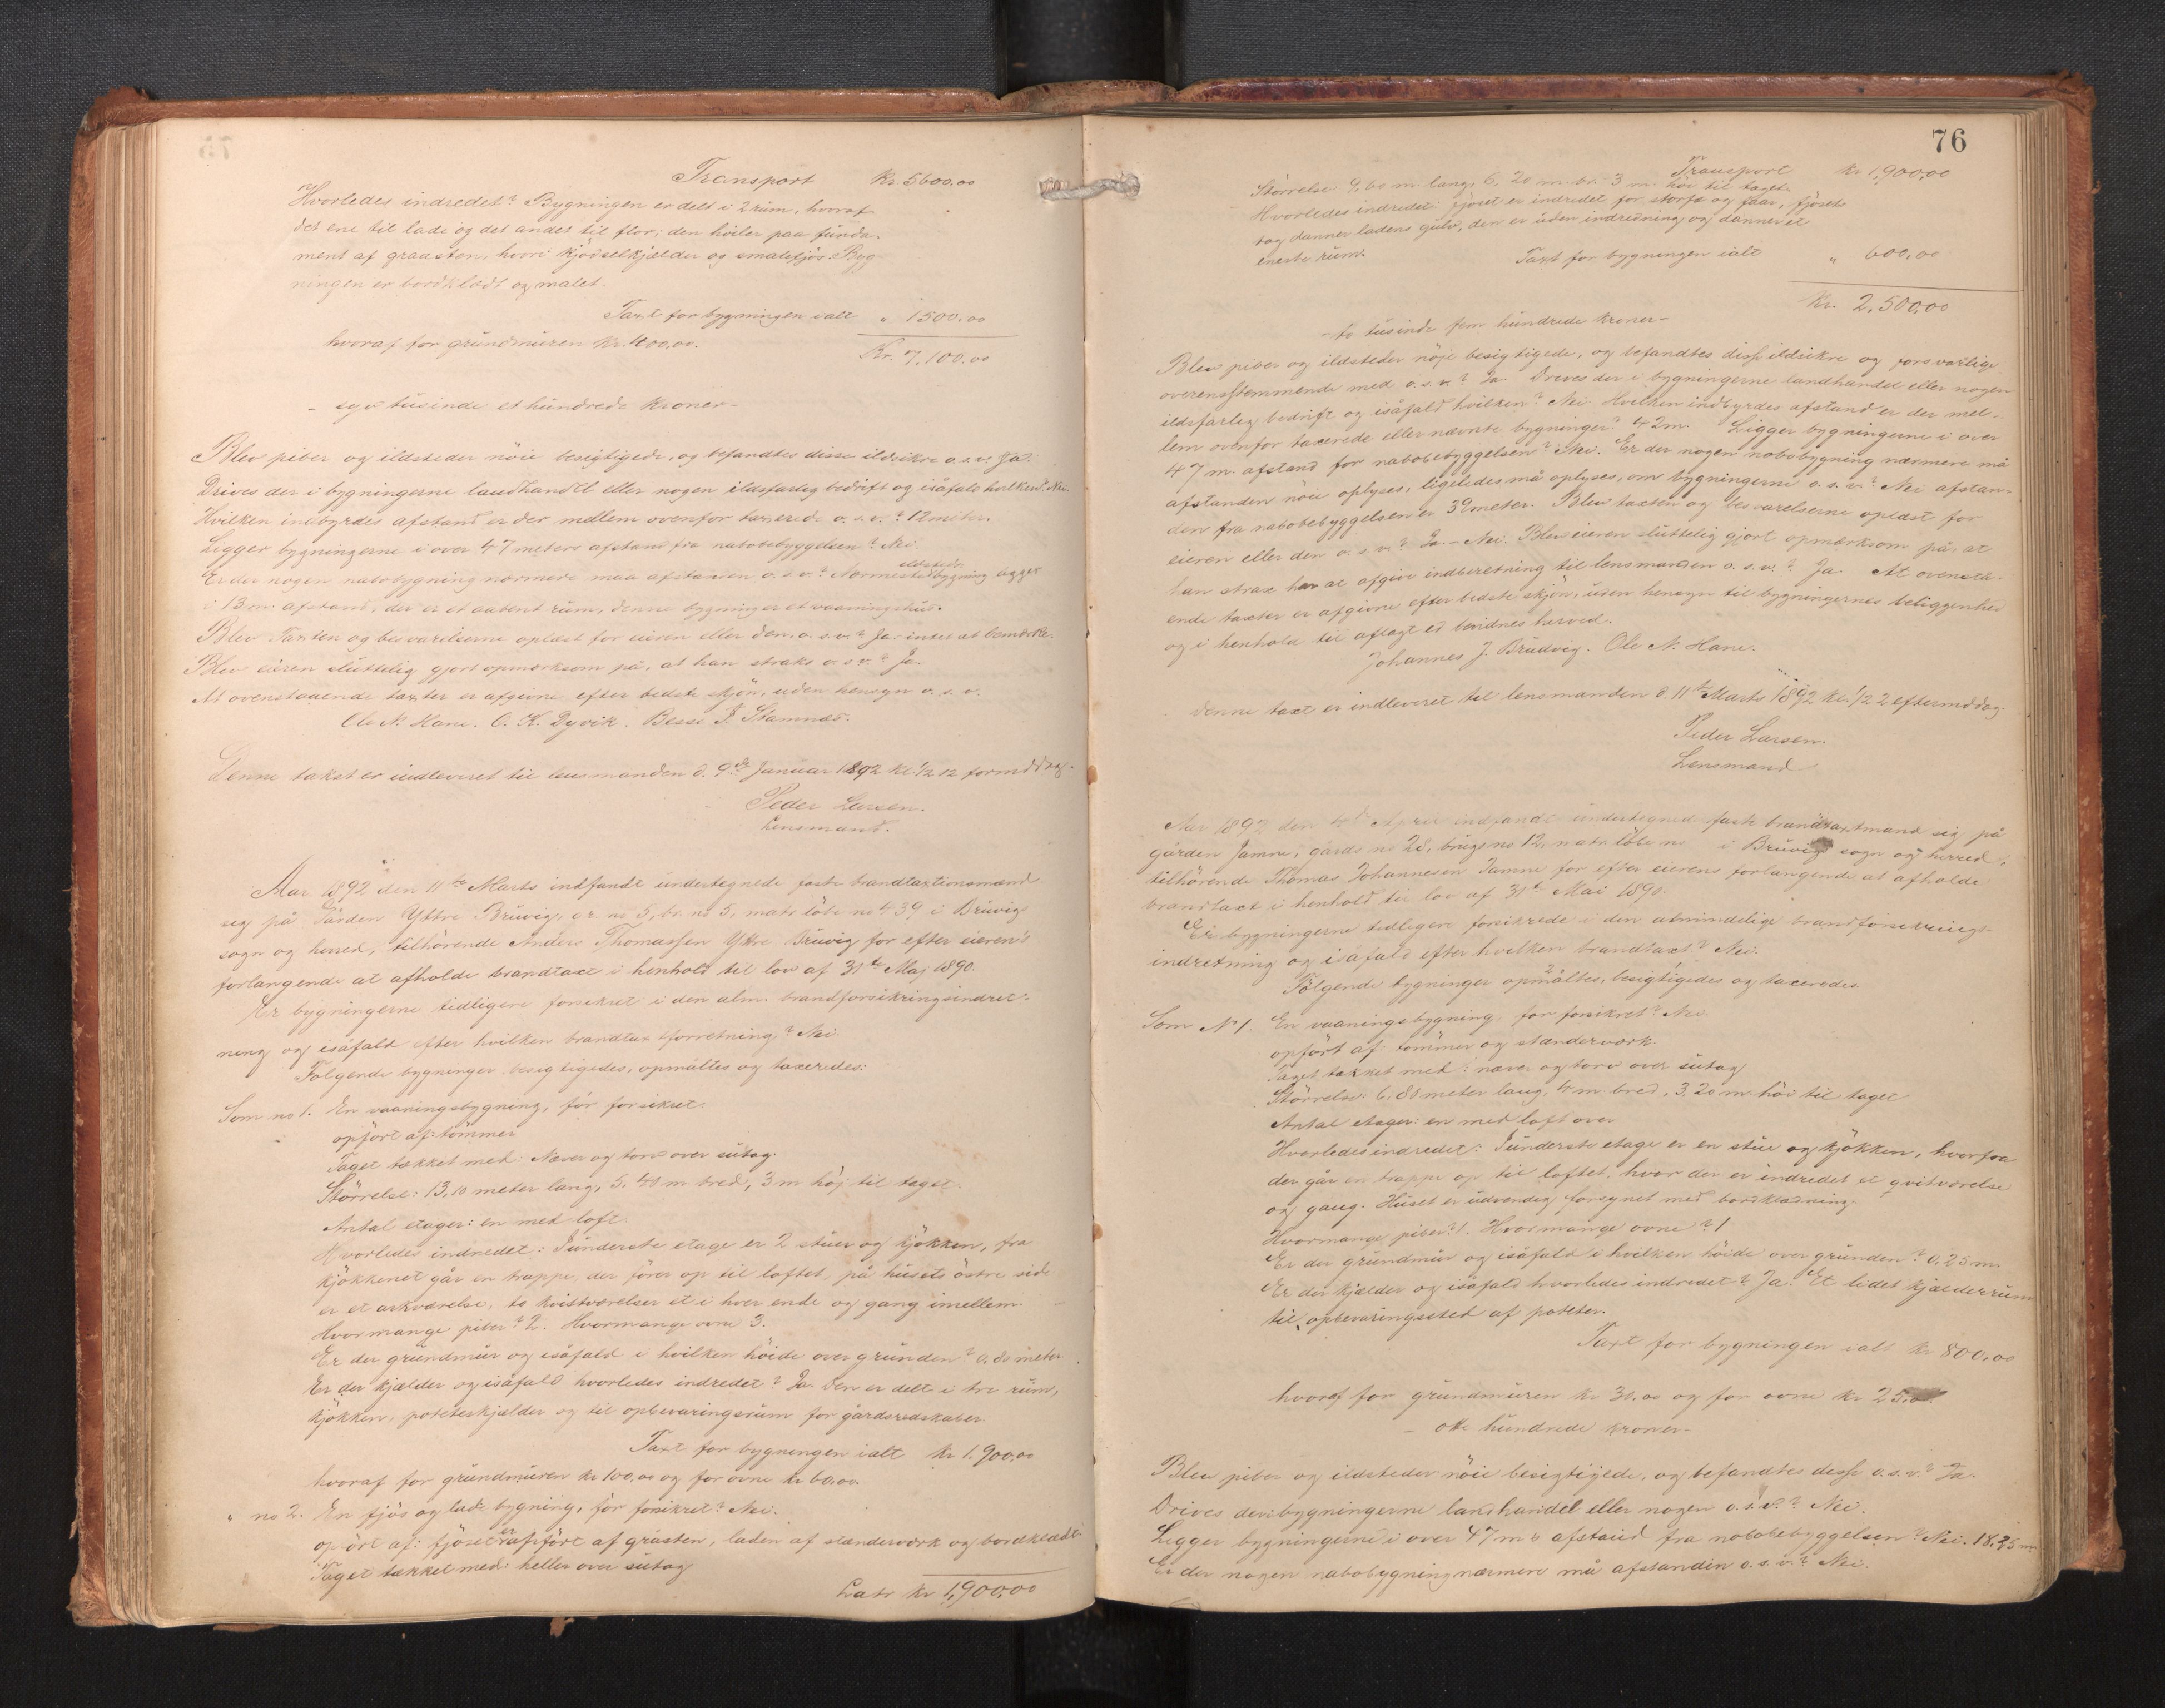 Transport Kr 5600.00
Hvorledes indredet? Bygningen er delt i 2 rum, hvoraf
det ene til lade og det andet til flor; den hviler paa funda-
ment af graasten, hvori kjødselkjelder og smalefjös. Byg-
ningen er bordklædt og malet.
Taxt for bygningen ialt " 1500.00
hvoraf for grundmuren Kr. 400.00.
Kr. 7.100.00
- syv tusinde et hundrede Kroner -
Blev piber og ildsteder nöie besigtigede, og befandtes disse ildsikre o.s.v. Ja.
Drives der i bygningerne landhandel eller nogen ildsfarlig bedrift og isåfald hvilken? Nei.
Hvilken indbyrdes afstand er der mellem ovenfor taxerede o.s.v.? 12 meter.
Ligger bygningerne i over 47 meters afstand fra nabobebyggelsen? Nei.
Er der nogen nabobygning nærmere maa afstanden o.s.v.? Nærmeste ildsteds bygning ligger
i 13 m. afstand, der er et aabent rum, denne bygning er et vaaningshus.
Blev Taxten og besvarelserne oplæst for eieren eller den o.s.v.? Ja intet at bemærke.
Blev eieren sluttelig gjort opmærksom på, at han straks o.s.v.? Ja.
At ovenstaaende taxter er afgivne efter bedste skjön, uden hensyn o.s.v.
Ole N. Hane. O. K. Dyvik. Besse T. Stamnæs.
Denne takst er indleveret til lensmanden d. 9de Januar 1892 kl. 1/2 12 formiddag.
Peder Larsen.
Lensmand.
Aar 1892 den 11te Marts indfandt undertegnede faste brandtaxtionsmænd
sig på Gården Yttre Bruvig, gr. no 5, br. no 3, matr. löbe no 439 i Bruvig
sogn og herred, tilhörende Anders Thomassen Yttre Bruvig for efter eieren's
forlangende at afholde brandtaxt i henhold til lov af 31te Maj 1890.
Er bygningerne tidligere forsikret i den alm. brandforsikringsindret-
ning og isåfald efter hvilken brandtaxtforretning? Nei.
Fölgende bygninger besigtigedes, opmåltes og taxeredes:
Som no 1. En vaaningsbygning, för forsikret
opfört af: tömmer
Taget tækket med: Næver og torv over sutag.
Störrelse: 13,10 meter lang, 5,40 m bred, 3 m höj til taget.
Antal etager: en med loft.
Hvorledes indredet: I underste etage er 2 stuer og kjökken, fra
kjökkenet går en trappe, der förer op til loftet, på husets östre side
er et arkværelse, to kvistværelser et i hver ende og gang imellem.
Hvor mange piber? 2. Hvormange ovne 3.
Er der grundmur og isåfald i hvilken höide over grunden? 0.80 meter.
Er der kjælder og isåfald hvorledes indredet? Ja. Den er delt i tre rum,
kjökken, poteteskjælder og til opbevaringsrum for gårdsredskaber.
Taxt for bygningen ialt kr 1.900,00
hvoraf for grundmuren kr 100,00 og for ovne kr 60,00.
" no 2. En fjös og lade bygning, för forsikret? Nei.
opfört af: fjöset er opfört af gråsten, laden af stænderværk og bordklædt.
Taget tækket med: heller over sutag
Latr kr 1,900,00
76
Transport Kr 1,900,00
Störrelse 9,60 m lang, 6,20 m br. 3 m höi til taget.
Hvorledes indredet: fjöset er indredet for storfæ og faar, fjösets
tag danner ladens gulv, den er uden indredning og danner et
eneste rum.
Taxt for bygningen ialt " 600,00
Kr. 2,500,00
- to tusinde fem hundrede kroner -
Blev piber og ildsteder nöje besigtigede, og befandtes disse ildsikre og forsvarlige
overensstemmende med o.s.v.? Ja. Drives der i bygningerne landhandel eller nogen
ildsfarlig bedrift og isåfald hvilken? Nei. Hvilken indbyrdes afstand er der mel-
lem ovenfor taxerede eller nævnte bygninger? 42 m. Ligger bygningerne i over
47 m. afstand for nabobebyggelsen? Nei. Er der nogen nabobygning nærmere må
afstanden nöie oplyses, ligeledes må oplyses, om bygningerne o.s.v.? Nei afstan-
den fra nabobebyggelsen er 32 meter. Blev taxten og besvarelserne oplæst for
eieren eller den o.s.v.? Ja. - Nei. Blev eieren sluttelig gjort opmærksom på, at
han strax har at afgive indberetning til lensmanden o.s.v.? Ja. At ovenstå-
ende taxter er afgivne efter bedste skjön, uden hensyn til bygningernes beliggenhed
og i henhold til aflagt ed bevidnes herved.
Johannes J. Brudvig. Ole N. Hane.
Denne taxt er indleveret til lensmanden d. 11te Marts 1892 kl. 1/2 2 eftermiddag.
Peder Larsen.
Lensmand
Aar 1892 den April indfandt undertegnede faste brandtaxtmænd sig på
gården Jamne, gårds no 28, brugs no 12, matr. löbe no i Bruvig sogn og herred,
tilhörende Thomas Johannesen Jamne for efter eierens forlangende at afholde
brandtaxt i henhold til lov af 31te Mai 1890.
Er bygningerne tidligere forsikrede i den almindelige brandforsikrings-
indretning og isåfald efter hvilken brandtaxt? Nei.
Fölgende bygninger opmåltes, besigtigedes og taxeredes
Som No 1 En vaaningsbygning, för forsikret? Nei.
opfört af: tömmer og stænderværk.
Taget tækket med: næver og torv over sutag
Störrelse: 6,80 meter lang, 4 m. bred, 3,20 m. höi til taget
Antal etager: en med loft over
Hvorledes indredet: I underste etage er en stue og kjökken, hvorfra
der går en trappe op til loftet, hvor der er indredet et qvistværelse
og gang. Huset er udvendig forsynet med bordklædning.
Hvormange piber? 1. Hvormange ovne? 1
Er der grundmur og isåfald i hvilken höide over grunden? 0,25 m.
Er der kjælder og isåfald hvorledes indredet? Ja. Et lidet kjælderrum
til opbevaringssted af poteter.
Taxt for bygningen ialt kr 800,00
hvoraf for grundmuren kr 30.00 og for ovne kr 25.00
- otte hundrede kroner -
Blev piber og ildsteder nöie besigtigede, og befandtes disse o.s.v.? Ja.
Drives der i bygningerne landhandel eller nogen o.s.v.? Nei.
Ligger bygningerne i over 47 m's afstand fra nabobebyggelsen? Nei. 18,25 m
Er der nogen nabobygning nærmere må afstanden o.s.v.? Nei.